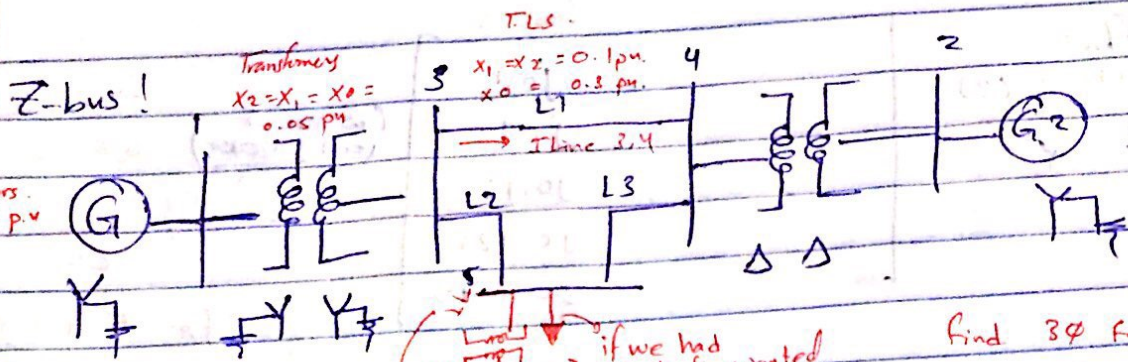 T.L's.
Z-bus!
Transformers
X2=X1=X0=
0.05 pu
X1=X2=0.1pu.
X0 = 0.3 pu.
3
4
2
1
L1
→ I line 3,4
rs.
p.u
G
G2
L2
L3
5
Y
Y Y
Δ Δ
Y
if we had
find 3Ø F